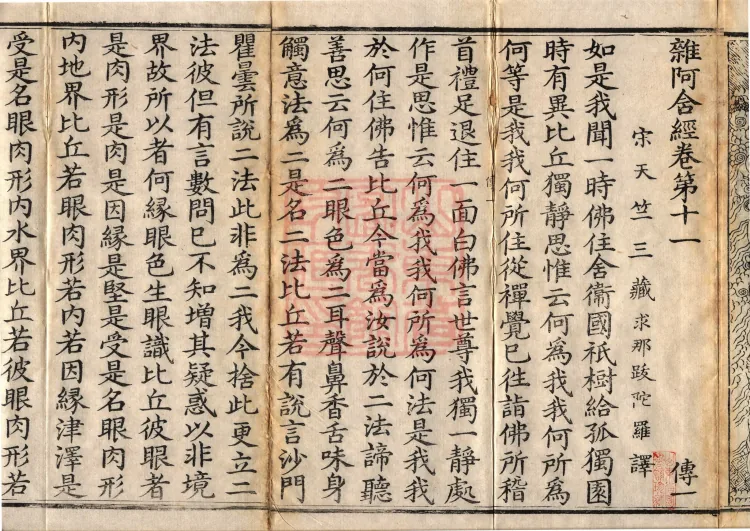 雜阿含經卷第十一 傳一
宋天竺三藏求那跋陀羅譯
如是我聞一時佛住舍衞國祇樹給孤獨園
時有異比丘獨靜思惟云何為我我何所為
何等是我我何所住從禪覺已往詣佛所稽
首禮足退住一面白佛言世尊我獨一靜處
作是思惟云何為我我何所為何法是我我
於何住佛告比丘今當為汝說於二法諦聽
善思云何為二眼色為二耳聲鼻香舌味身
觸意法為二是名二法比丘若有說言沙門
瞿曇所說二法此非為二我今捨此更立二
法彼但有言數問已不知增其疑惑以非境
界故所以者何緣眼色生眼識比丘彼眼者
是肉形是肉是因緣是堅是受是名眼肉形
內地界比丘若眼肉形若內若因緣津澤是
受是名眼肉形內水界比丘若彼眼肉形若